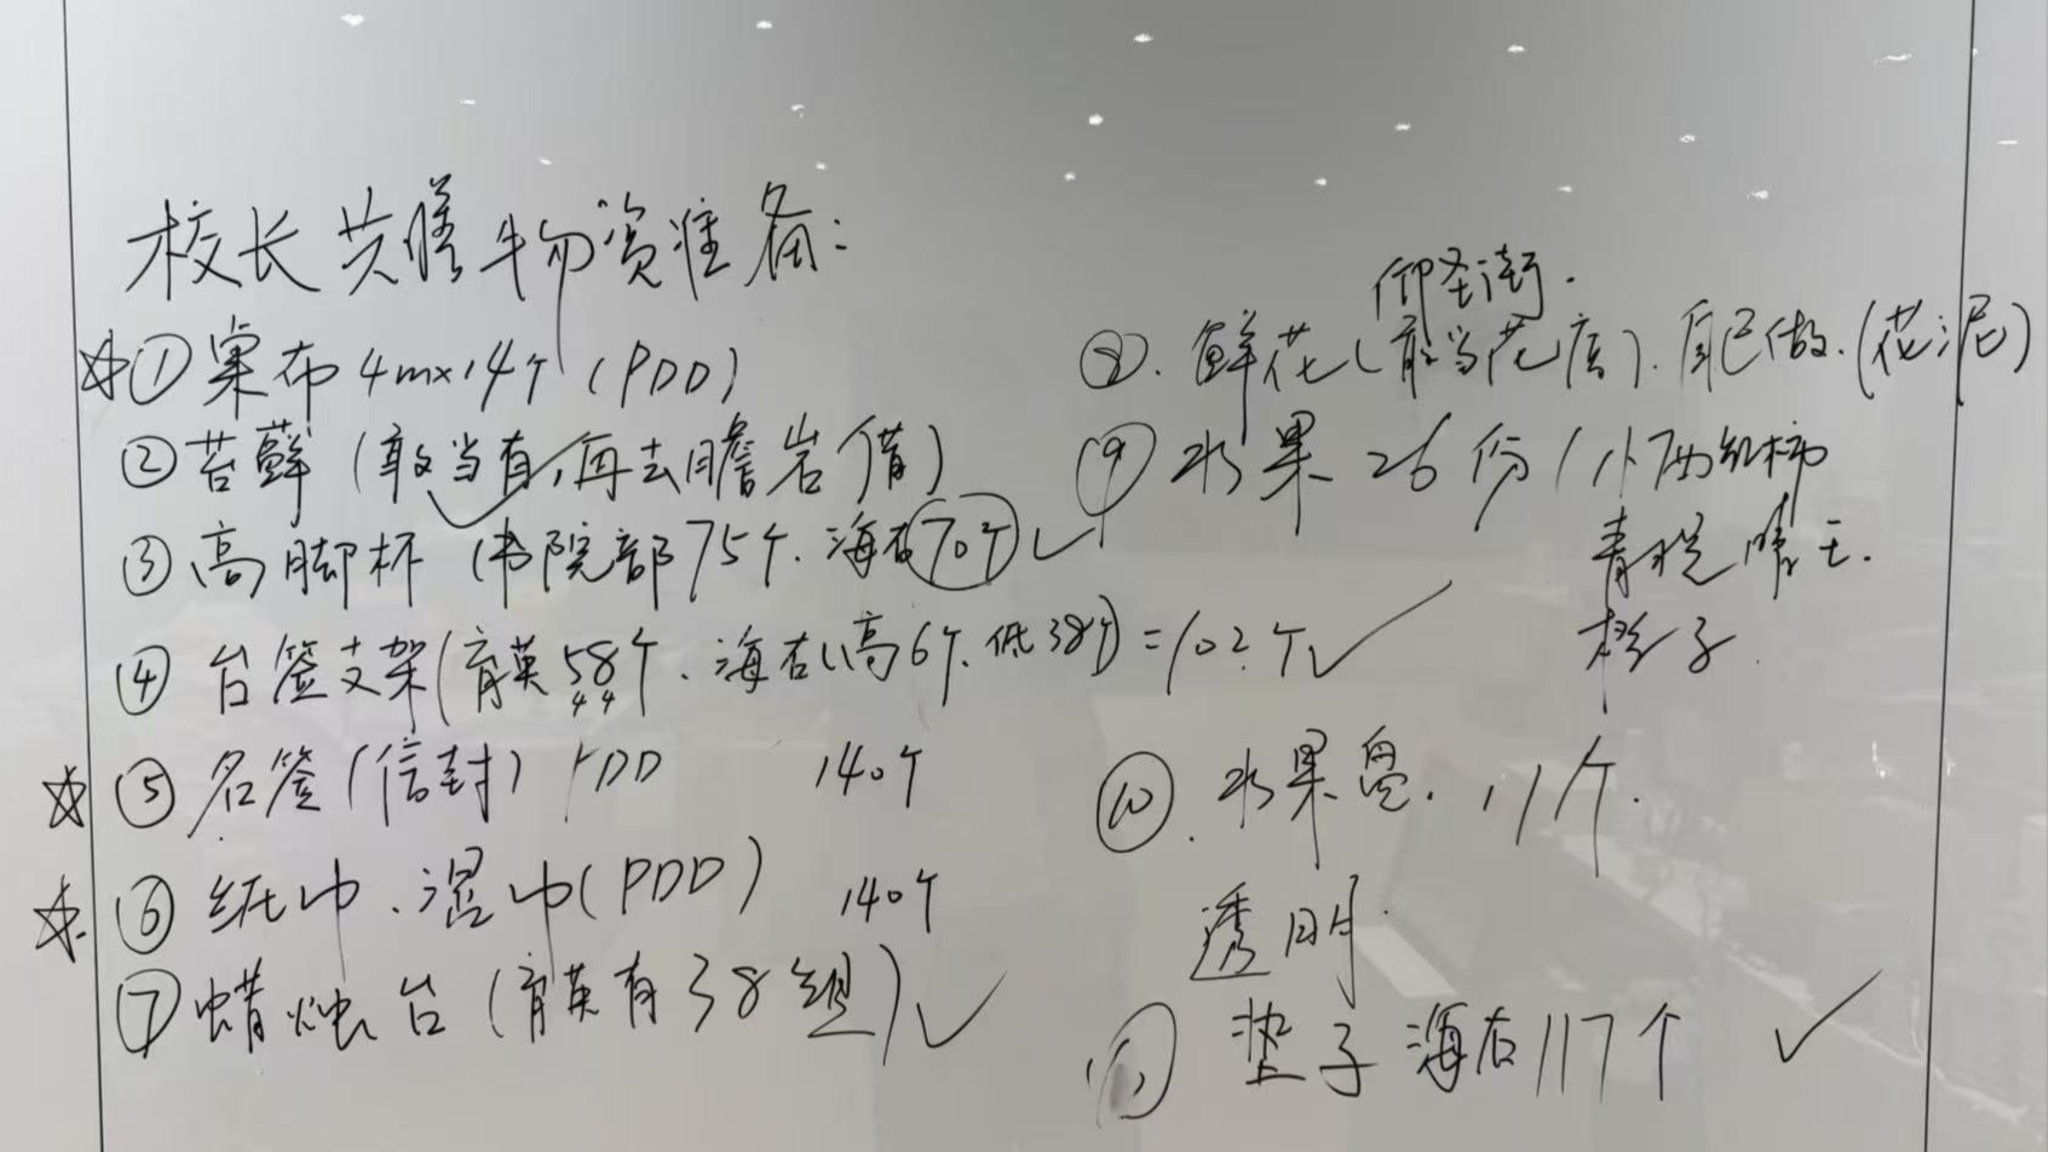 校长共膳物资准备:
☆①桌布4m×14个(PDD)
②苔藓(敢当有✓,再去瞻岩借)
③高脚杯(书院部75个.海右70个)✓
④台签支架(育英58个.海右(高6个.低38个)=102个✓
44
☆⑤名签(信封)PDD 140个
☆⑥纸巾.湿巾(PDD) 140个
⑦蜡烛台(育英有38组)✓
仰圣街.
⑧.鲜花(敢当花店).自己做.(花泥)
⑨水果26份(小西红柿
青提 晴王.
橙子.
⑩.水果盘.11个.
透明.
⑪垫子海右117个 ✓